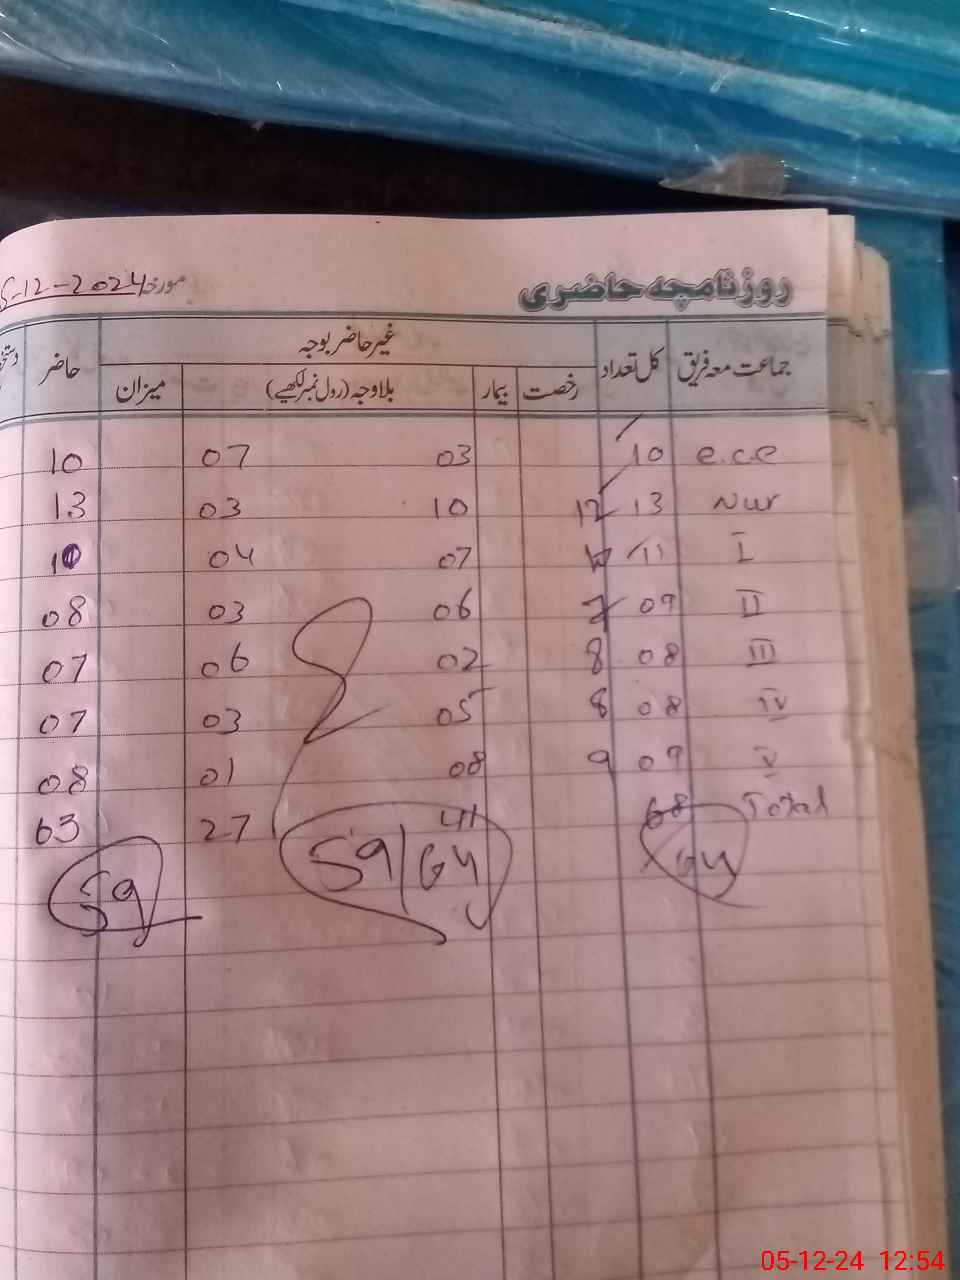 روزنامچہ حاضری مورخہ 5-12-2024
جماعت معہ فریق کل تعداد غیر حاضر بوجہ حاضر
رخصت بیمار بلاوجہ (رول نمبر لکھیے) میزان
e.c.e 10 03 07 10
Nur 13 12 10 03 13
I 11 07 04
II 09 7 06 03 08
III 08 8 02 06 07
IV 08 8 05 03 07
V 09 9 08 01 08
Total 68 41 27 63
64 59/64 59
05-12-24 12:54